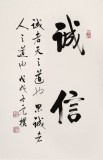 诚信
诚者天之道也思诚者
人之道也